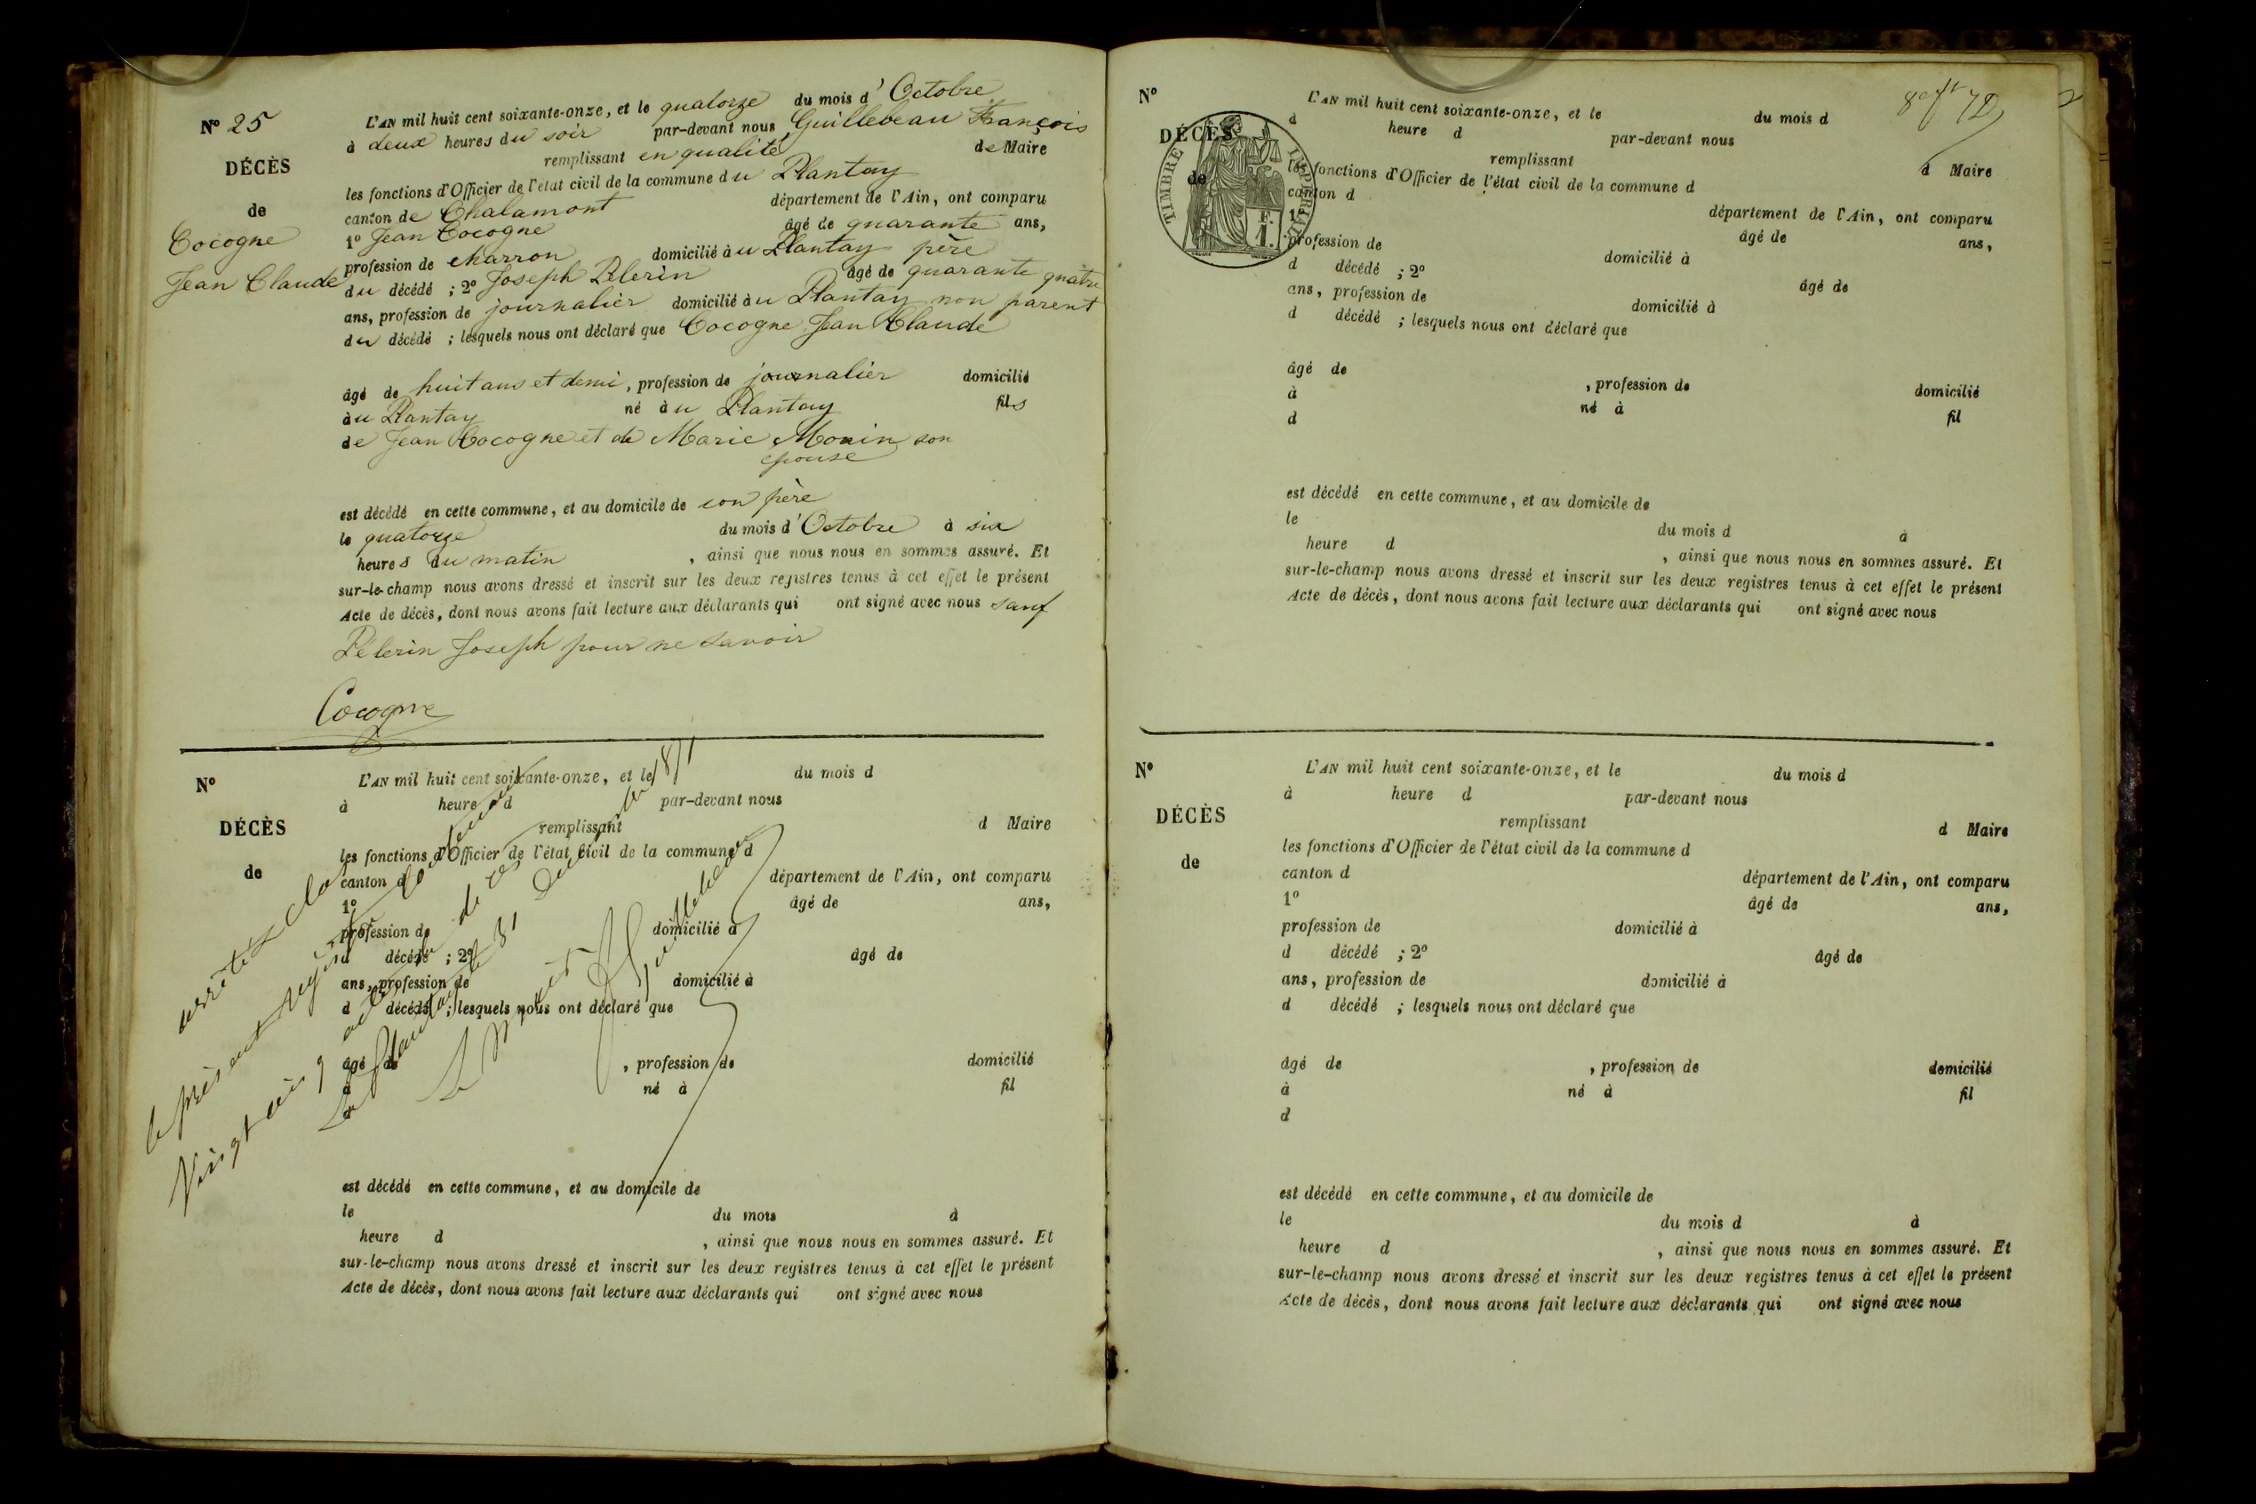 N° 25
DÉCÈS
de
Cocogne
Jean Claude
L'AN mil huit cent soixante-onze, et le quatorze du mois d'Octobre
à deux heures du soir par-devant nous Guillebeau François
remplissant en qualité de Maire
les fonctions d'Officier de l'état civil de la commune du Plantay
canton de Chalamont département de l'Ain, ont comparu
1° Jean Cocogne âgé de quarante ans,
profession de charron domicilié au Plantay père
du décédé ; 2° Joseph Pelerin âgé de quarante quatre
ans, profession de journalier domicilié au Plantay non parent
du décédé ; lesquels nous ont déclaré que Cocogne Jean Claude
âgé de huit ans et demi, profession de journalier domicilié
au Plantay né au Plantay fils
de Jean Cocogne et de Marie Monin son
epouse
est décédé en cette commune, et au domicile de son père
le quatorze du mois d'Octobre à six
heures du matin, ainsi que nous nous en sommes assuré. Et
sur-le-champ nous avons dressé et inscrit sur les deux registres tenus à cet effet le présent
Acte de décès, dont nous avons fait lecture aux déclarants qui ont signé avec nous sauf
Pélerin Joseph pour ne savoir
Cocogne
N°
DÉCÈS
de
L'AN mil huit cent soixante-onze, et le du mois d
à heure d par-devant nous
remplissant d Maire
les fonctions d'Officier de l'état civil de la commune d
canton d département de l'Ain, ont comparu
1° âgé de ans,
profession de domicilié à
d décédé ; 2° âgé de
ans, profession de domicilié à
d décédé ; lesquels nous ont déclaré que
âgé de , profession de domicilié
à né à fil
d
est décédé en cette commune, et au domicile de
le du mois à
heure d , ainsi que nous nous en sommes assuré. Et
sur-le-champ nous avons dressé et inscrit sur les deux registres tenus à cet effet le présent
Acte de décès, dont nous avons fait lecture aux déclarants qui ont signé avec nous
arrêté & clos
le présent registre
Vingt cinq actes de
Le Plantay le 31 Decembre 1871
Le Maire
Guillebeau
N°
DÉCÈS
de
TIMBRE IMPERIAL
F.
1.
L'AN mil huit cent soixante-onze, et le du mois d
à heure d par-devant nous
remplissant d Maire
les fonctions d'Officier de l'état civil de la commune d
canton d département de l'Ain, ont comparu
1° âgé de ans,
profession de domicilié à
d décédé ; 2° âgé de
ans, profession de domicilié à
d décédé ; lesquels nous ont déclaré que
âgé de , profession de domicilié
à né à fil
d
est décédé en cette commune, et au domicile de
le du mois d à
heure d , ainsi que nous nous en sommes assuré. Et
sur-le-champ nous avons dressé et inscrit sur les deux registres tenus à cet effet le présent
Acte de décès, dont nous avons fait lecture aux déclarants qui ont signé avec nous
N°
DÉCÈS
de
L'AN mil huit cent soixante-onze, et le du mois d
à heure d par-devant nous
remplissant d Maire
les fonctions d'Officier de l'état civil de la commune d
canton d département de l'Ain, ont comparu
1° âgé de ans,
profession de domicilié à
d décédé ; 2° âgé de
ans, profession de domicilié à
d décédé ; lesquels nous ont déclaré que
âgé de , profession de domicilié
à né à fil
d
est décédé en cette commune, et au domicile de
le du mois d à
heure d , ainsi que nous nous en sommes assuré. Et
sur-le-champ nous avons dressé et inscrit sur les deux registres tenus à cet effet le présent
Acte de décès, dont nous avons fait lecture aux déclarants qui ont signé avec nous